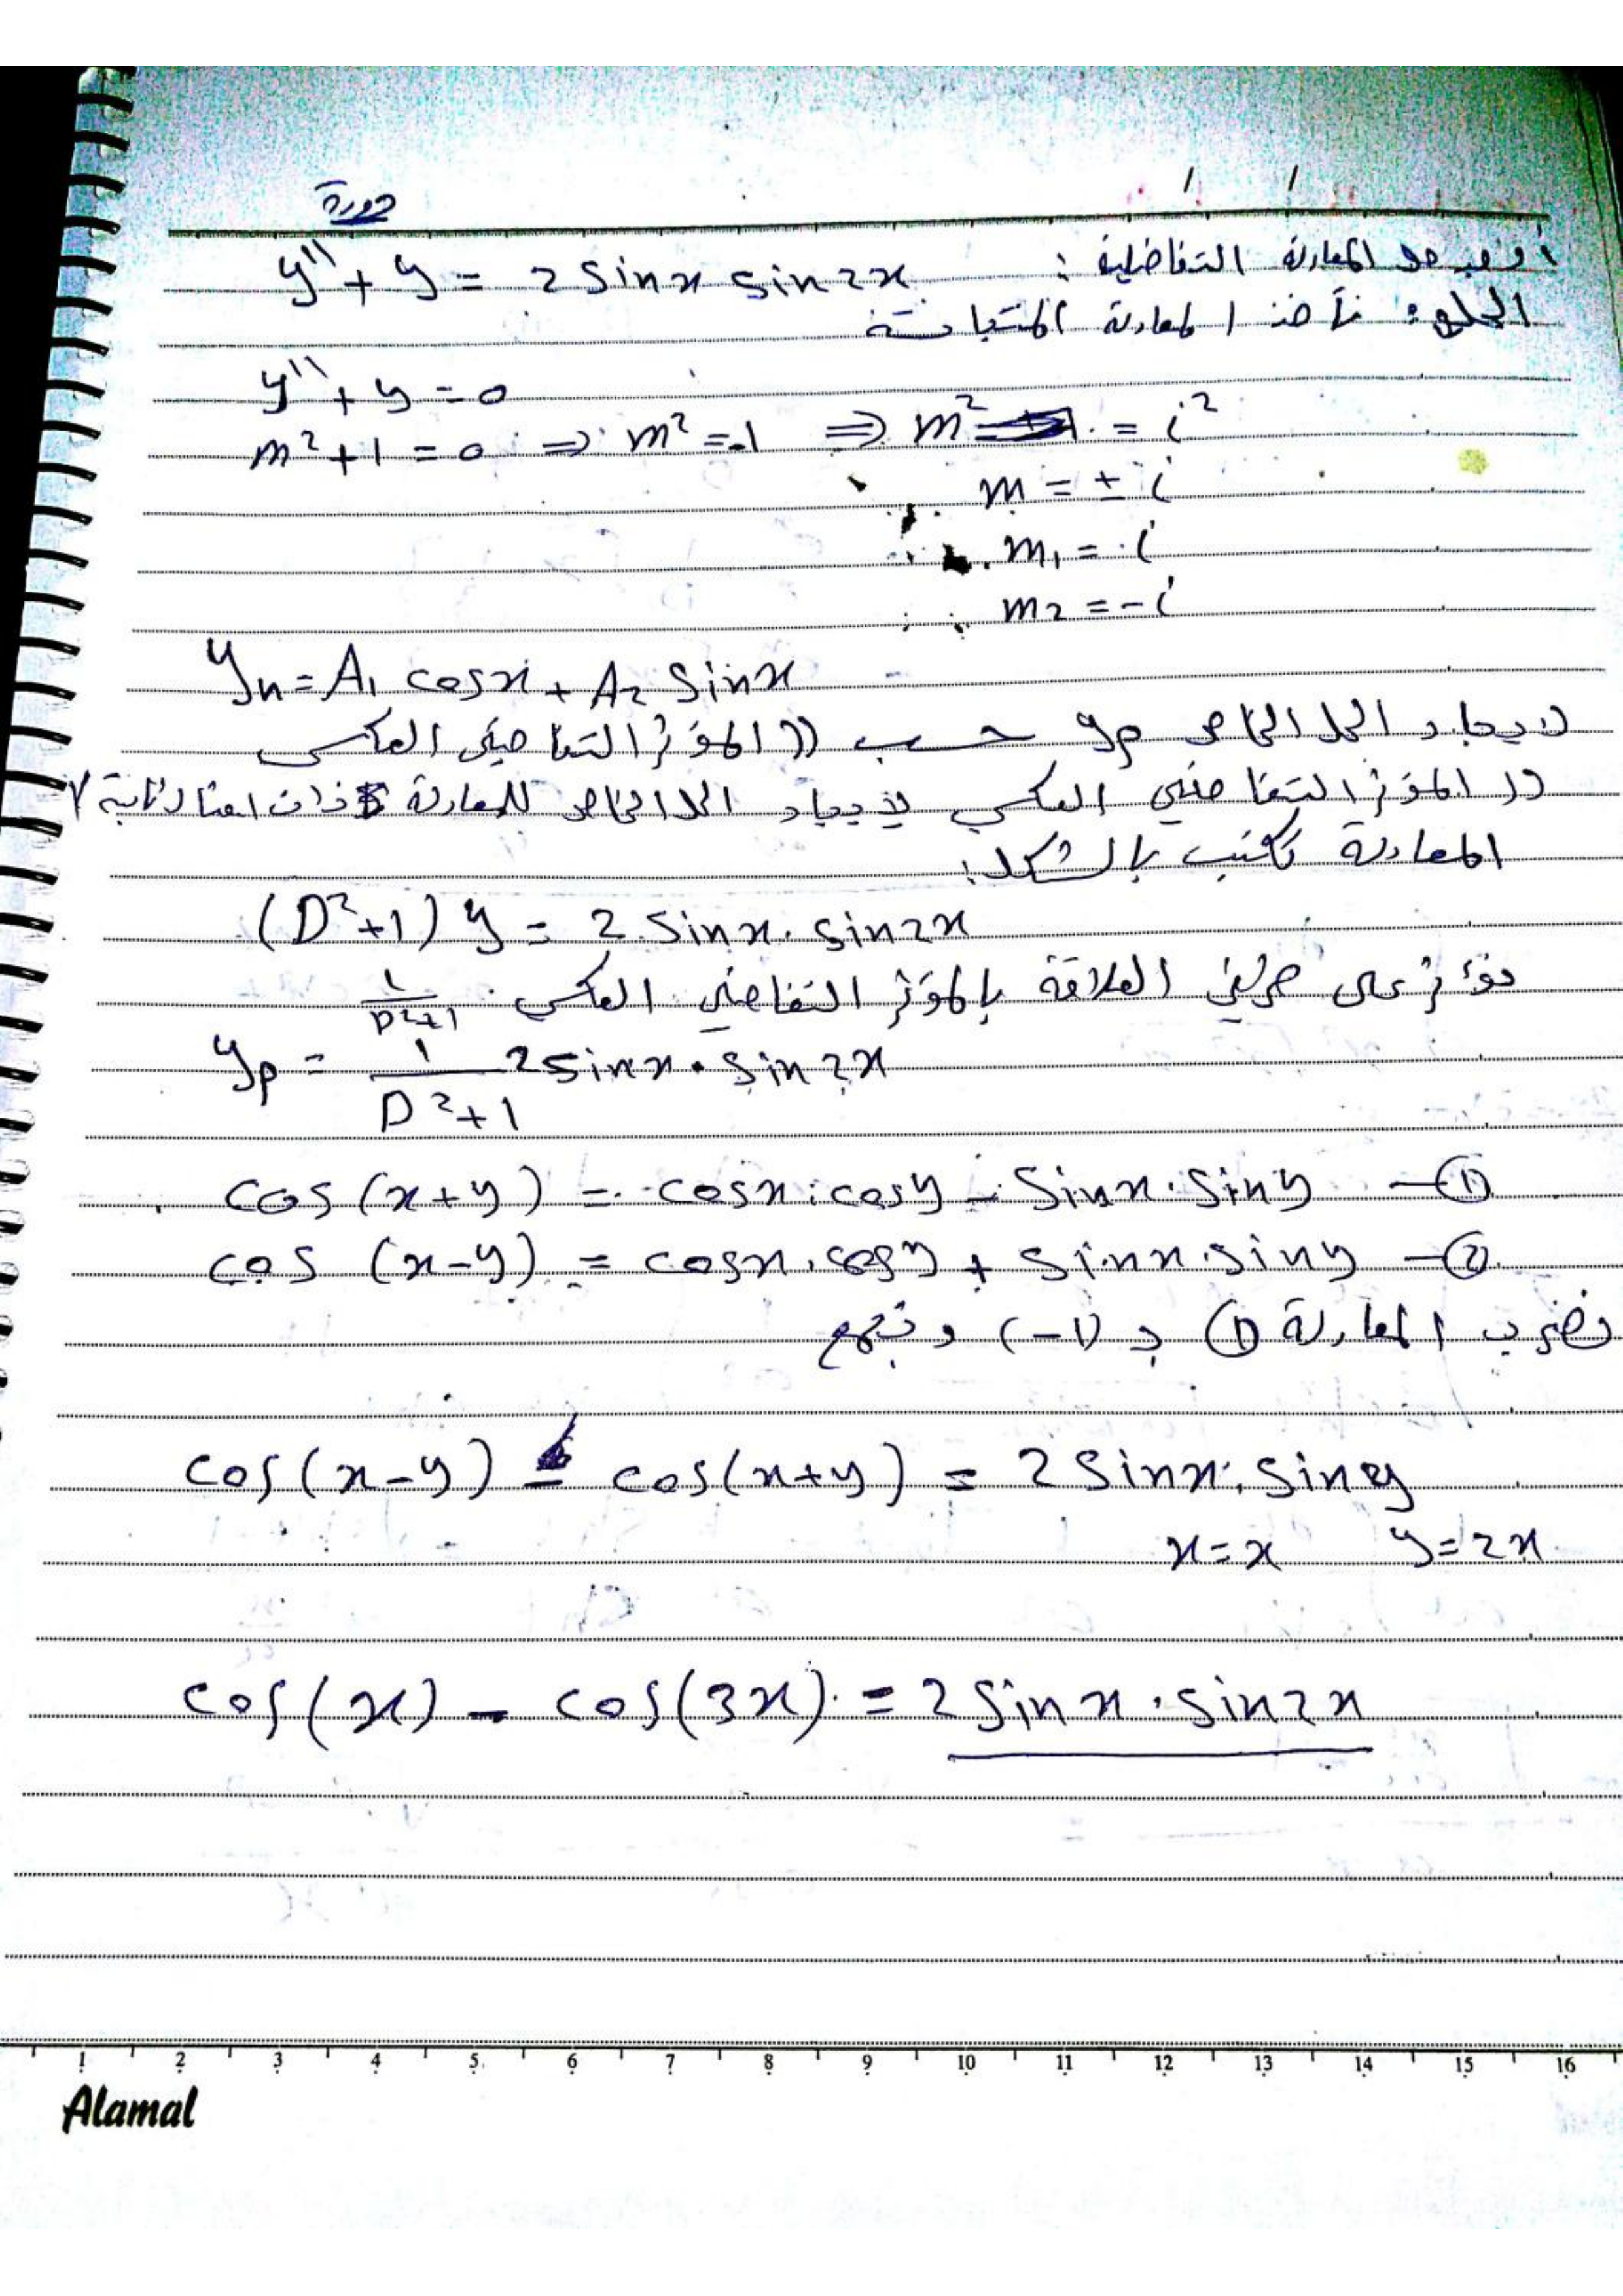 دورة
أوجد حل المعادلة التفاضلية : y'' + y = 2 sin x sin 2x
الحل : نأخذ المعادلة المتجانسة
y'' + y = 0
m² + 1 = 0 ⇒ m² = -1 ⇒ m² = i²
m = ± i
∴ m₁ = i
∴ m₂ = -i
yₕ = A₁ cos x + A₂ sin x
لايجاد الحل الخاص yp حسب (( المؤثر التفاضلي العكسي
(( المؤثر التفاضلي العكسي لايجاد الحل الخاص للمعادلة ذات
المعادلة تكتب بالشكل:
(D² + 1) y = 2 sin x . sin 2x
نؤثر على طرفي العلاقة بالمؤثر التفاضلي العكسي 1/(D²+1)
yp = 1/(D² + 1) 2 sin x . sin 2x
cos (x + y) = cos x . cos y - sin x . sin y —①
cos (x - y) = cos x . cos y + sin x . sin y —②
نضرب المعادلة ① بـ (-1) ونجمع
cos (x - y) - cos (x + y) = 2 sin x . sin y
x = x y = 2x
cos (x) - cos (3x) = 2 sin x . sin 2x
1 2 3 4 5 6 7 8 9 10 11 12 13 14 15 16
Alamal